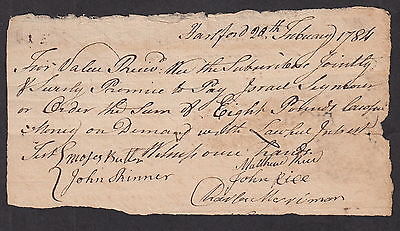 Hartford 28th February 1784
For Value Recivd Wee the Subscribers Jointly
& Surely Promise to Pay Israel Seymour
or Order the Sum of Eight Pounds Lawful
Money on Demand with Lawful Interest
Test Moses Butler Witness our hands
John Skinner Matthew
John
Merriman